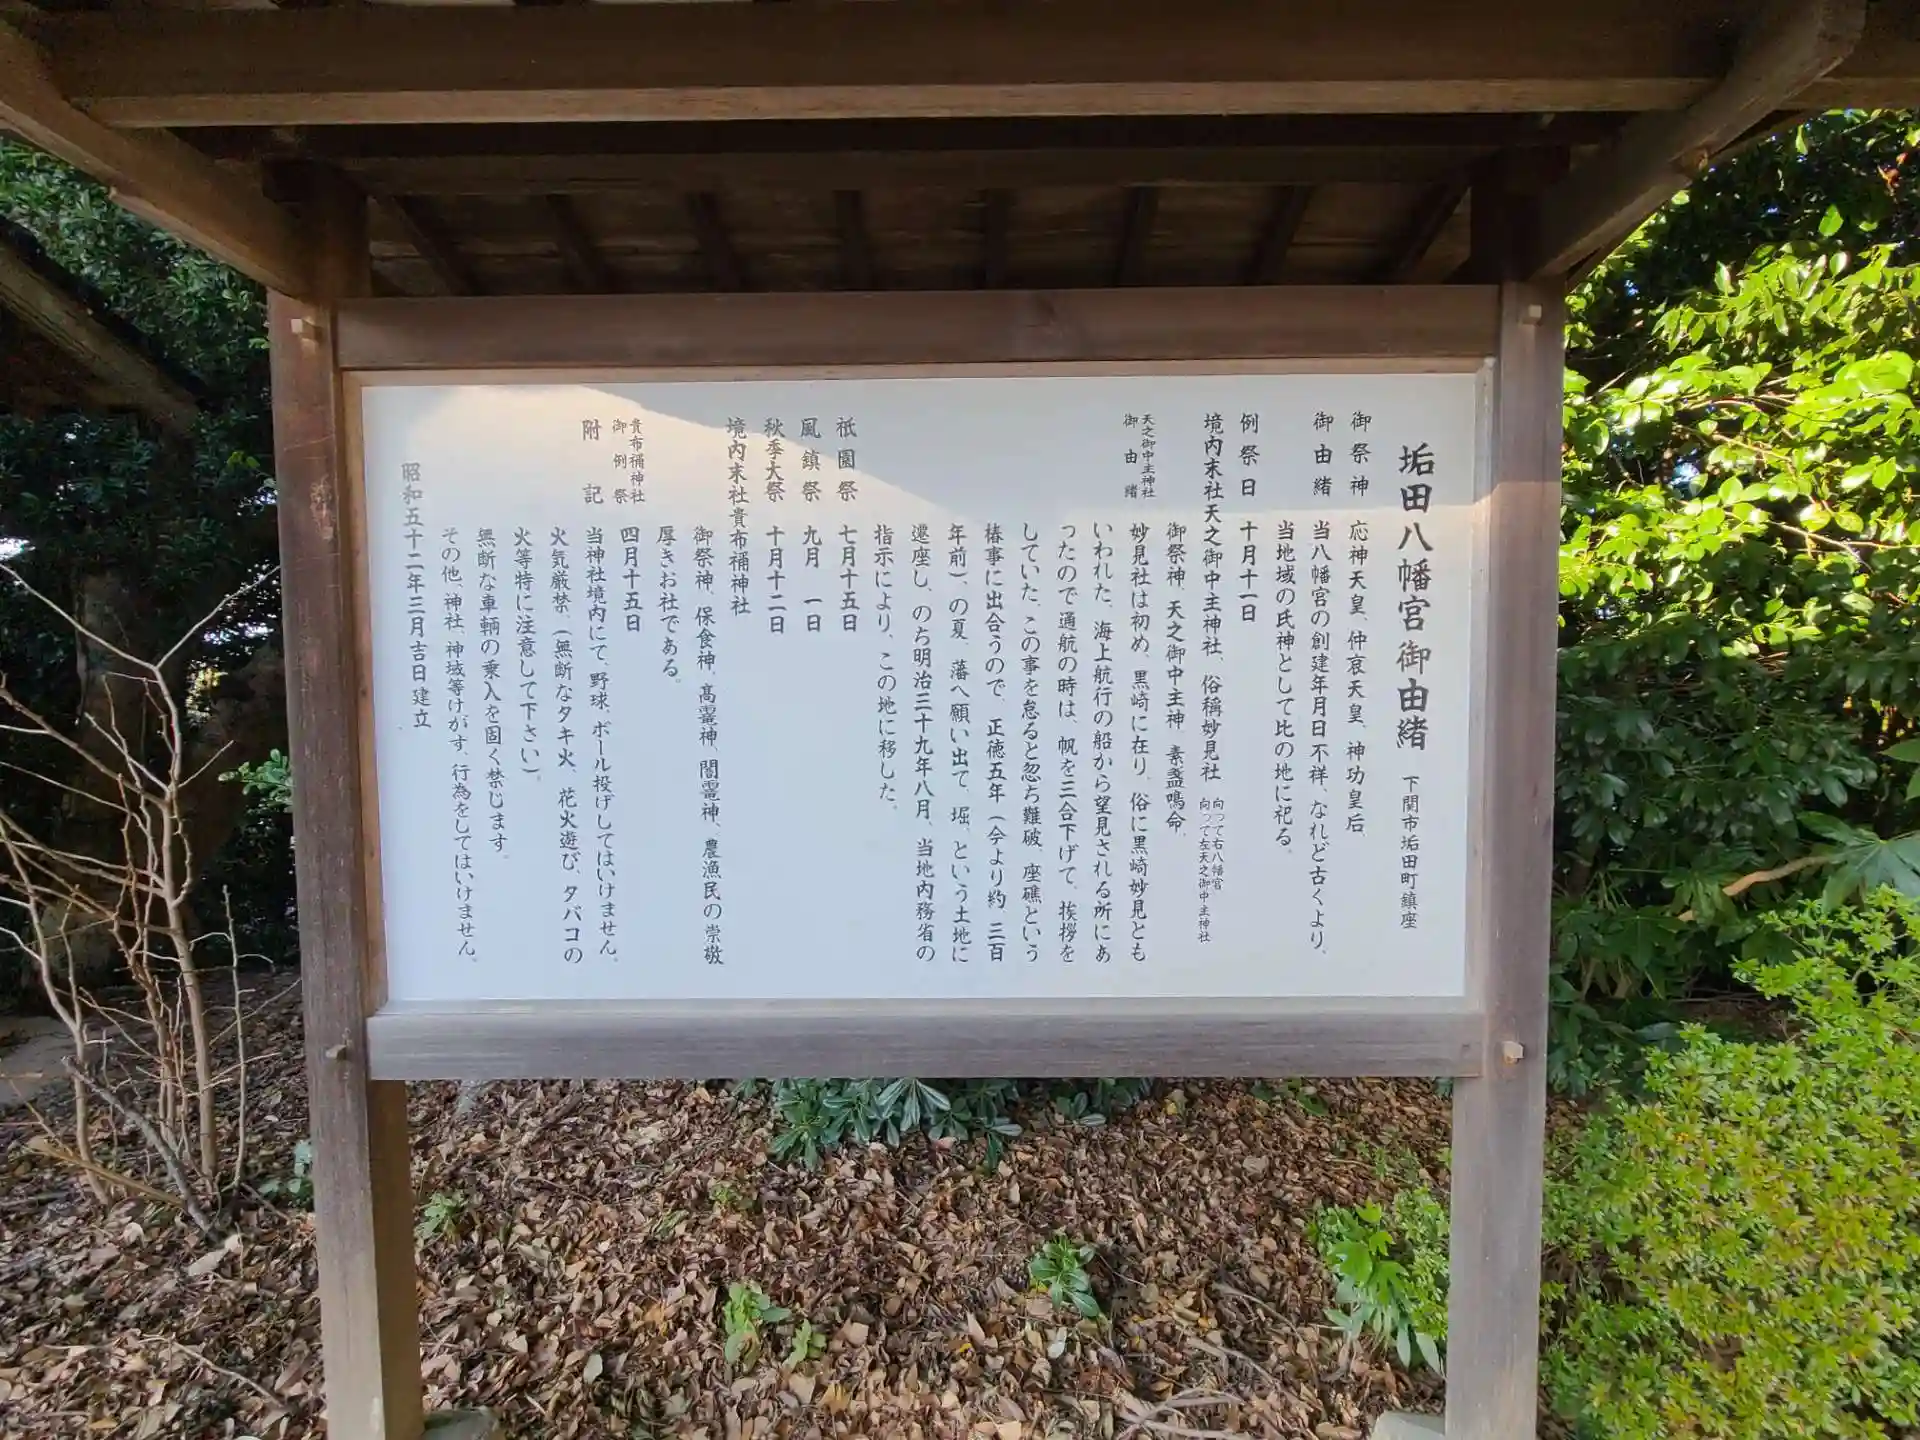 垢田八幡宮御由緒 下関市垢田町鎮座
御祭神 応神天皇、仲哀天皇、神功皇后、
御由緒 当八幡宮の創建年月日不祥、なれど古くより、
当地域の氏神として比の地に祀る。
例祭日 十月十一日
境内末社天之御中主神社、俗稱妙見社 向って右八幡宮
向って左天之御中主神社
御祭神、天之御中主神、素盞鳴命、
天之御中主神社
御由緒
妙見社は初め、黒崎に在り、俗に黒崎妙見とも
いわれた、海上航行の船から望見される所にあ
ったので通航の時は、帆を三合下げて、挨拶を
していた、この事を怠ると忽ち難破、座礁という
椿事に出合うので、正徳五年(今より約 三百
年前)、の夏、藩へ願い出て、堀、という土地に
遷座し、のち明治三十九年八月、当地内務省の
指示により、この地に移した。
祇園祭 七月十五日
風鎮祭 九月 一日
秋季大祭 十月十二日
境内末社貴布禰神社
御祭神、保食神、高龗神、闇龗神、農漁民の崇敬
厚きお社である。
貴布禰神社
御例祭
四月十五日
附記 当神社境内にて、野球、ボール投げしてはいけません。
火気厳禁、(無断なタキ火、花火遊び、タバコの
火等特に注意して下さい)。
無断な車輌の乗入を固く禁じます。
その他、神社、神域等けがす、行為をしてはいけません。
昭和五十二年三月吉日建立